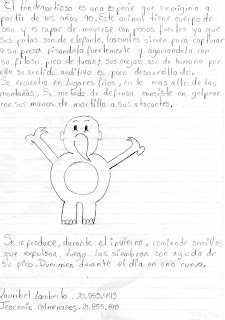 El tondemartioso es una especie que se origina a
partir de los años 90. Este animal tiene cuerpo de
oso y es capaz de moverse con pasos fuertes ya que
sus patas son de elefante, las cuales sirven para capturar
a su presa pisandola fuertemente y agarrandola con
su filoso pico de tucan; sus orejas son de humano por
ello su sentido auditivo es poco desarrollado.
Se encuentra en lugares frios, en lo mas alto de las
montañas, Su metodo de defensa consiste en golpear
con sus manos de martillo a sus atacantes.
Se reproduce, durante el invierno, comiendo semillas
que expulsan, luego las siembran con ayuda de
su pico. Duermen durante el dia en una cueva.
Lambertt. 20.855.443
Colmenares. 20.855.890